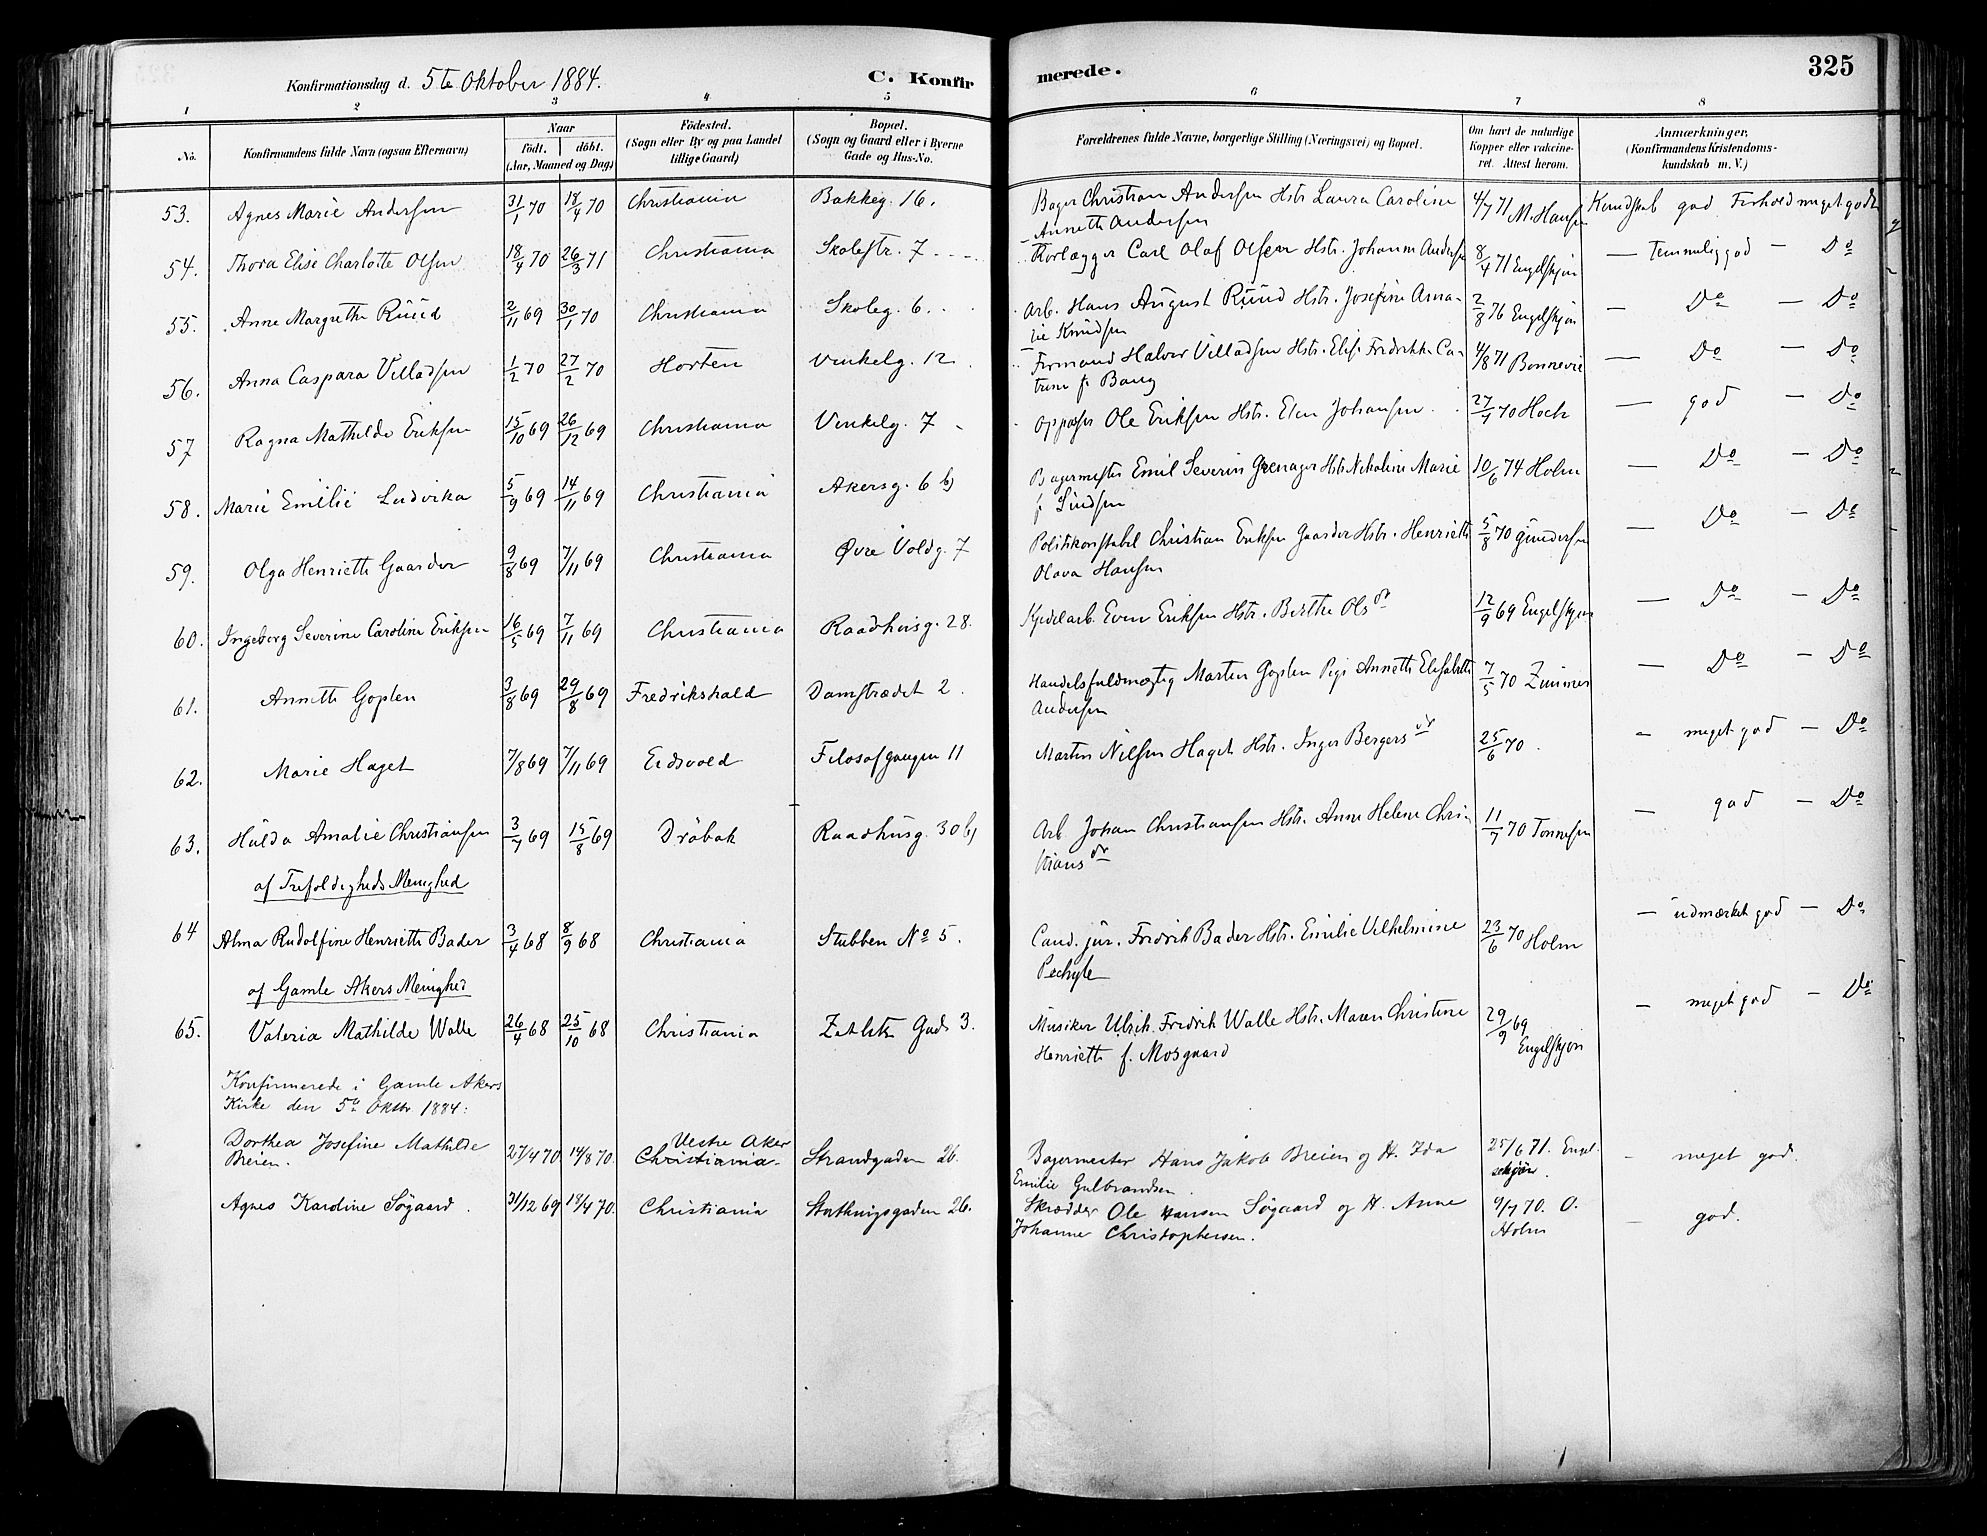 Konfirmationsdag d. 5te Oktober 1884.
C. Konfirmerede.
325
1 2 3 4 5 6 7 8
No.
Konfirmandens fulde Navn (ogsaa Efternavn)
Naar
födt. döbt.
(Aar, Maaned og Dag)
Födested.
(Sogn eller By og paa Landet
tillige Gaard)
Bopæl.
(Sogn og Gaard eller i Byerne
Gade og Hus-No.
Forældrenes fulde Navne, borgerlige Stilling (Næringsvei) og Bopæl.
Om havt de naturlige
Kopper eller vakcine-
ret. Attest herom.
Anmærkninger,
(Konfirmandens Kristendoms-
kundskab m. V.)
53. Agnes Marie Andersen 31/1 70 18/4 70 Christiania Bakkeg. 16. Bager Christian Andersen Hstr Laura Caroline 4/7 71 M. Hansen Kundskab god Forhold meget godt
Annette Andersen
54. Thora Elise Charlotte Olsen 18/4 70 26/3 71 Christiania Skolestr. 7 Rorlægger Carl Olaf Olsen Hstr. Johanne Andersen 8/4 71 Engelskjøn — Temmelig god — Do
55. Anne Margrethe Ruud 2/11 69 30/1 70 Christiania Skoleg. 6. Arb. Hans August Ruud Hstr. Josefine Ama- 2/8 76 Engelskjøn — Do — Do
lie Knudsen
56. Anna Caspara Villadsen 1/2 70 27/2 70 Horten Vinkelg. 12 Formand Halvor Villadsen Hstr. Elise Fredrikke Ca- 4/8 71 Bonnevie — Do — Do
trine f. Bang
57 Ragna Mathilde Eriksen 15/10 69 26/12 69 Christiania Vinkelg. 7 Oppasser Ole Eriksen Hstr. Elen Johansen 27/4 70 Hoch — god — Do
58. Marie Emilie Ludvika 5/9 69 14/11 69 Christiania Akersg. 6 b) Bagermester Emil Severin Grenager Hstr Nikoline Marie 10/6 74 Holm — Do — Do
f Lindsen
59. Olga Henriette Gaarder 9/8 69 7/11 69 Christiania Øvre Voldg. 7 Politikonstabel Christian Eriksen Gaarder Hstr. Henriette 5/8 70 Gundersen — Do — Do
Olava Hansen
60. Ingeborg Severine Caroline Eriksen 16/5 69 7/11 69 Christiania Raadhusg. 28. Kjedelarb. Even Eriksen Hstr. Berthe Olsdr 12/9 69 Engelskjøn — Do — Do
61. Annette Goplen 3/8 69 29/8 69 Fredrikshald Damstrædet 2. Handelsfuldmægtig Marten Goplen Pige Annette Elisabeth 7/5 70 Zimmer — Do — Do
Andersen
62. Marie Haget 7/8 69 7/11 69 Eidsvold Filosofgangen 11 Martin Nilsen Haget Hstr. Inger Bergersdr 25/6 70. — meget god — Do
63. Hulda Amalie Christiansen 3/7 69 15/8 69 Dröbak Raadhusg. 30 b) Arb. Johan Christiansen Hstr. Anne Helene Chris 11/7 70 Tonnesen — god — Do
tiansdr
af Trefoldigheds Menighed
64 Alma Rudolfine Henriette Bader 3/4 68 8/9 68 Christiania Stubben No 5. Cand. jur. Fredrik Bader Hstr. Emilie Vilhelmine 23/6 70 Holm — udmærket god — Do
Pechyle
af Gamle Akers Menighed
65. Valeria Mathilde Walle 26/4 68 25/10 68 Christiania Gade 3. Musiker Ulrik Fredrik Walle Hstr. Maren Christine 29/9 69 Engelskjøn — meget god — Do
Henriette f. Mosgaard
Konfirmerede i Gamle Akers
Kirke den 5te Oktbr 1884:
Dorthea Josefine Mathilde
Breien. 27/4 70 14/8 70. Christiania Vestre Aker Strandgaden 26. Bagermester Hans Jakob Breien og H. Ida 25/6 71. Engel-
skjøn. — meget god.
Emilie Gulbrandsen.
Agnes Karoline Sögaard. 31/12 69 18/4 70. Christiania Storthingsgaden 26. Skrædder Ole Hansen Sögaard og H. Anne 9/7 70. O.
Holm — god.
Johanne Christophersen.